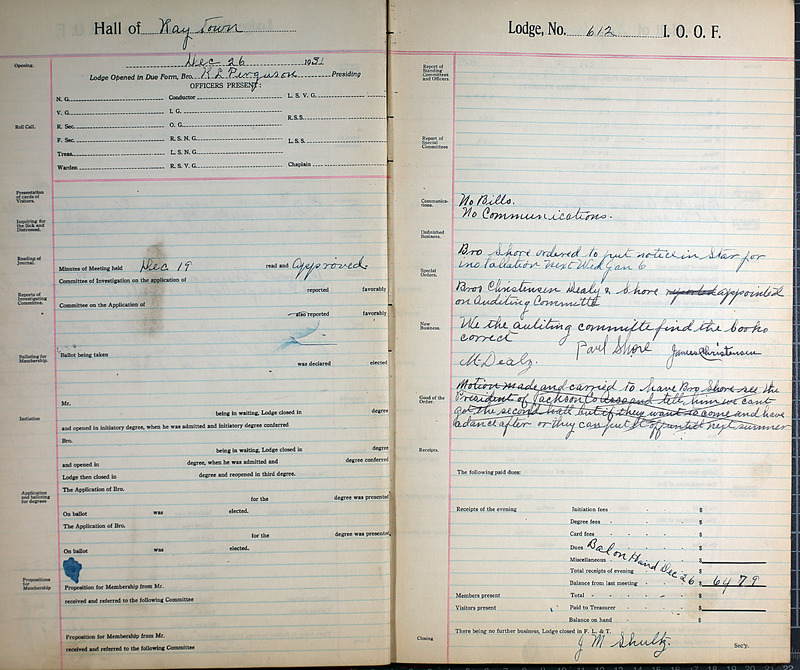 Hall of Raytown
Dec 26 1931
Opening.
Lodge Opened in Due Form, Bro. R L Ferguson Presiding
OFFICERS PRESENT:
N. G. Conductor L. S. V. G.
V. G. I. G. R.S.S.
Roll Call.
R. Sec. O. G.
F. Sec. R. S. N. G. L.S.S.
Treas. L. S. N. G.
Warden R. S. V. G. Chaplain
Presentation of cards of Visitors.
Inquiring for the Sick and Distressed.
Reading of Journal.
Minutes of Meeting held Dec 19 read and approved.
Committee of Investigation on the application of
reported favorably
Reports of Investigating Committee.
Committee on the Application of
also reported favorably
Balloting for Membership.
Ballot being taken
was declared elected
Mr.
being in waiting, Lodge closed in degree
Initiation
and opened in initiatory degree, when he was admitted and initiatory degree conferred
Bro.
being in waiting, Lodge closed in degree
and opened in degree, when he was admitted and degree conferred
Lodge then closed in degree and reopened in third degree.
Application and balloting for degrees
The Application of Bro.
for the degree was presented
On ballot was elected.
The Application of Bro.
for the degree was presented
On ballot was elected.
Propositions for Membership
Proposition for Membership from Mr.
received and referred to the following Committee
Proposition for Membership from Mr.
received and referred to the following Committee
Lodge, No. 612 I. O. O. F.
Report of Standing Committees and Officers.
Report of Special Committees
Communications.
No Bills.
No Communications.
Unfinished Business.
Bro Shore ordered to put notice in Star for
installation next Wed Jan 6
Special Orders.
Bros Christensen Dealy & Shore reported appointed
on Auditing Committe
New Business.
We the auditing committe find the books
correct Paul Shore James Christensen
M. Dealy.
Good of the Order.
Motion made and carried to have Bro Shore see the
President of Jackson Co and tell him we cant
get the second hall but if they want to come and have
a dance after or they can put it off until next summer
Receipts.
The following paid dues:
Receipts of the evening Initiation fees $
Degree fees $
Card fees $
Dues $
Miscellaneous $
Bal on Hand Dec 26
Total receipts of evening $
Balance from last meeting $ 64 79
Members present Total $
Visitors present Paid to Treasurer $
Balance on hand $
There being no further business, Lodge closed in F. L. & T.
Closing J M Shultz. Sec'y.